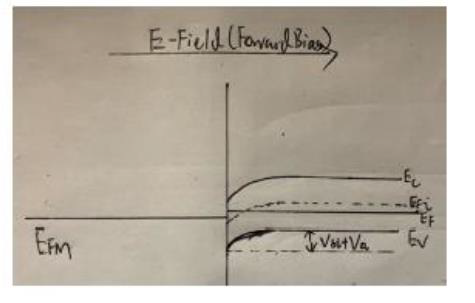 E-Field (Forward Bias)
Ec
EFi
EF
EFM
Vbi+Va
EV